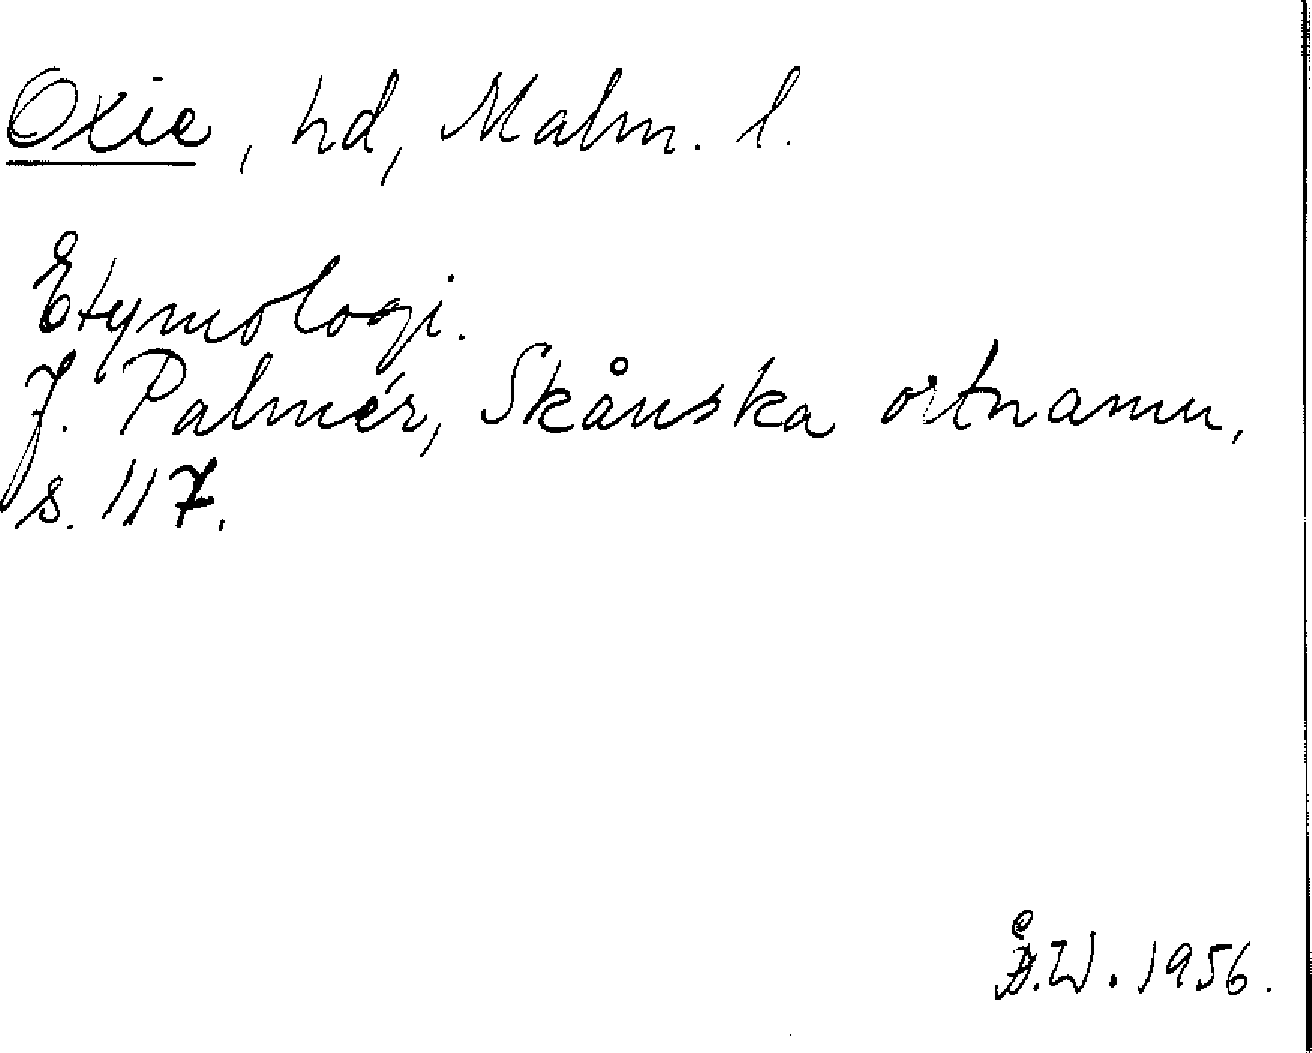 Oxie, hd, Malm. l.
Etymologi.
J. Palmér, Skånska ortnamn,
s. 117.
Å.W. 1956.